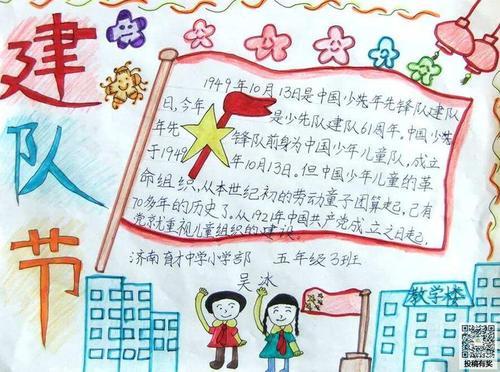 建队节
1949年10月13日是中国少先年先锋队建队
日,今年是少先队建队61周年。中国少先
年先锋队前身为中国少年儿童队,成立
于1949年10月13日。但中国少年儿童的革
命组织,从本世纪初的劳动童子团算起,已有
70多年的历史了。从1921年中国共产党成立之日起,
党就尤重视儿童组织的建设。
济南育才中学小学部 五年级3班
吴冰
教学楼
投稿有奖